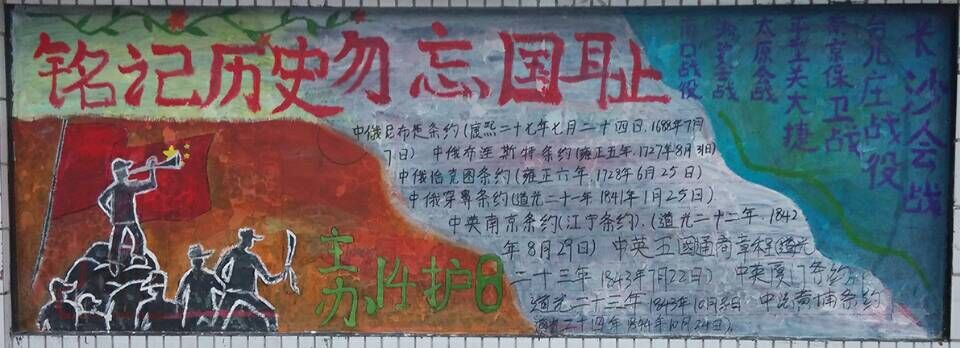 铭记历史勿忘国耻
中俄尼布楚条约(康熙二十七年七月二十四日,1688年7月
7日) 中俄布连斯特条约(雍正五年,1727年8月31日)
中俄恰克图条约(雍正六年,1728年6月25日)
中俄穿鼻条约(道光二十一年1841年1月25日)
中英南京条约(江宁条约),(道光二十二年,1842
年8月29日) 中英五國通商章程(道光
二十三年 1843年7月22日) 中英虎门条约
道光二十三年 1843年10月8日 中法黄埔条约
道光二十四年1844年10月24日),
长沙会战
台儿庄战役
南京保卫战
平型关大捷
太原会战
淞沪会战
战役
主办
护日